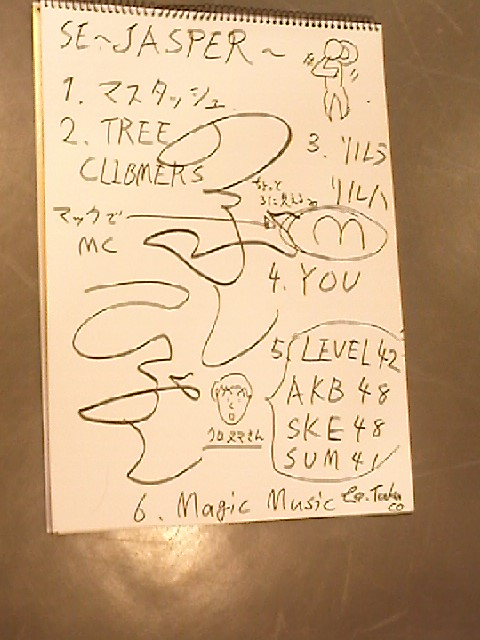 SE~JASPER~
1. マスタッシュ
2. TREE
CLIBMERS
3. リルラ
リルハ
ちょっと
3に見えるw
マックで
MC
m
4. YOU
5. LEVEL 42
AKB 48
SKE 48
SUM 41
クロヌマさん
6. Magic Music